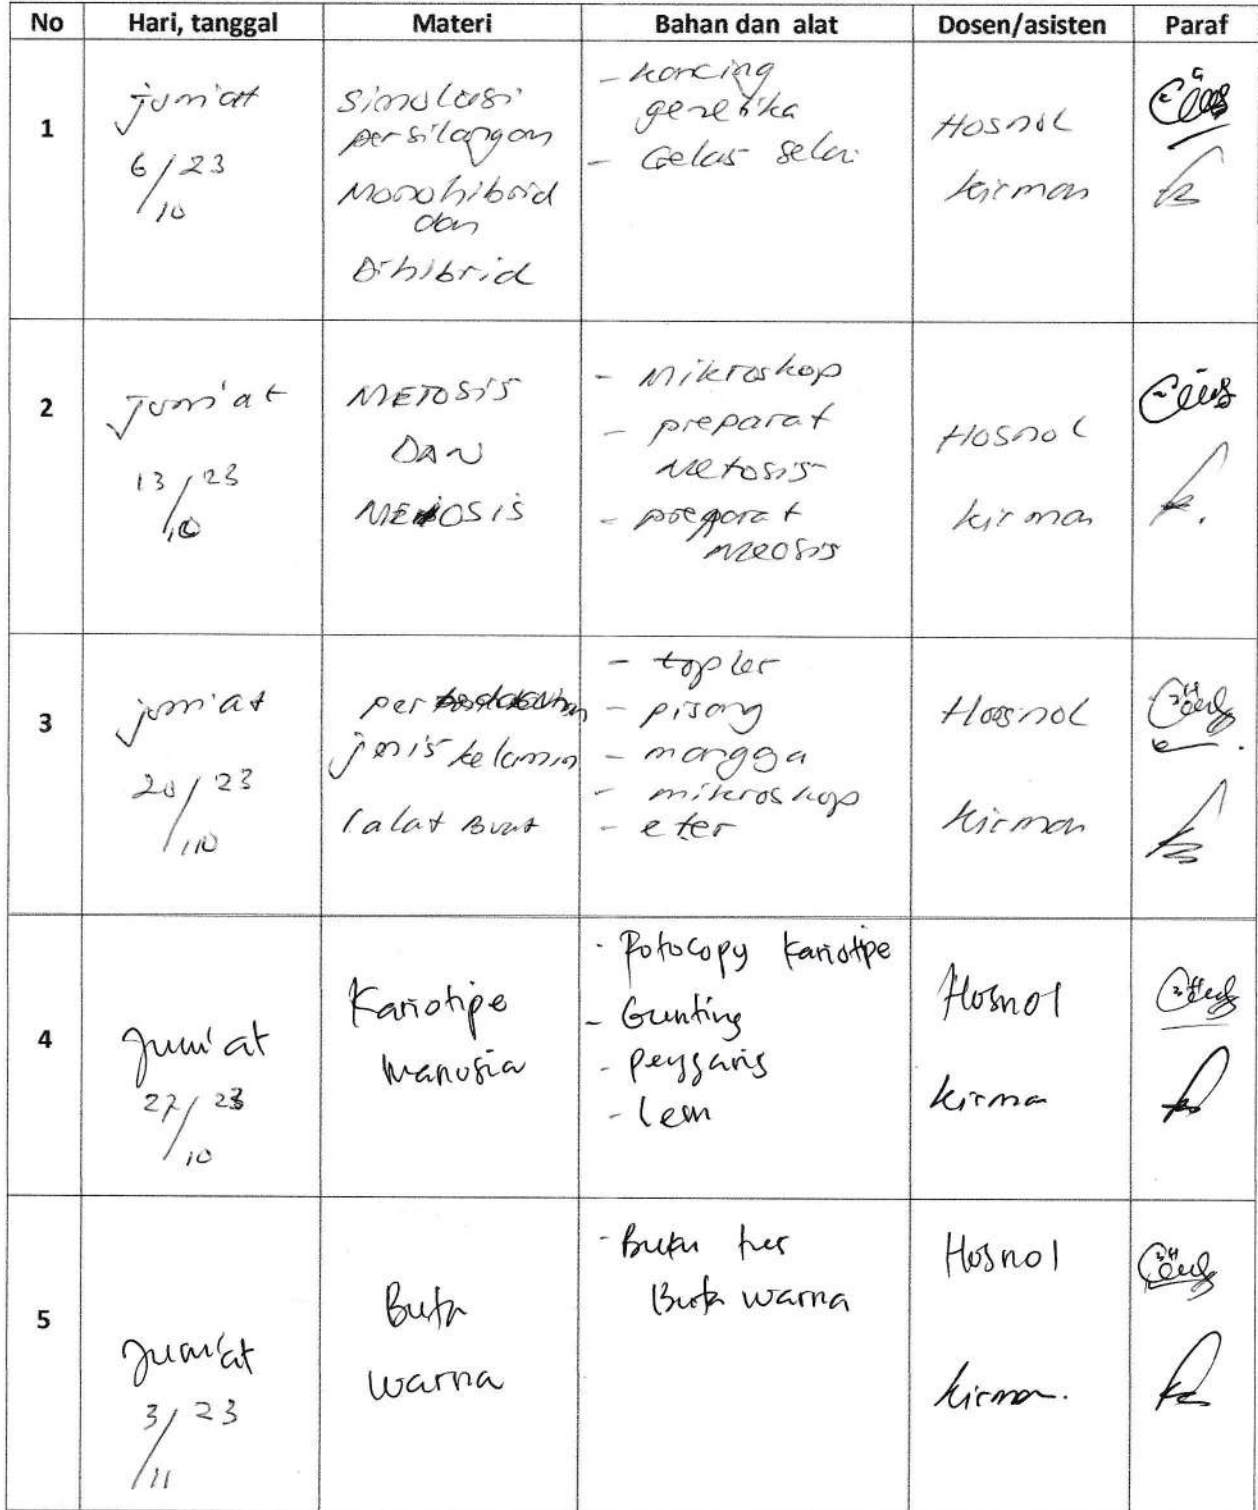 No Hari, tanggal Materi Bahan dan alat Dosen/asisten Paraf
1
jum'at
6/23
/10
Simulasi
persilangan
Monohibrid
dan
Dihibrid
- kancing
genetika
- Gelas selai
Hosnol
kirman
2
Jum'at
13/23
/10
METOSIS
DAN
MEIOSIS
- Mikroskop
- preparat
Metosis
- preparat
Meosis
Hosnol
kirman
3
jum'at
20/23
/10
per
jenis kelamin
lalat Buat
- topler
- pisang
- mangga
- mikroskop
- eter
Hosnol
kirman
4
Jum'at
27/23
/10
Kariotipe
manusia
- Fotocopy kariotipe
- Gunting
- penggaris
- lem
Hosnol
kirman
5
Jum'at
3/23
/11
Buta
warna
- Buku tes
Buta warna
Hosnol
kirman.